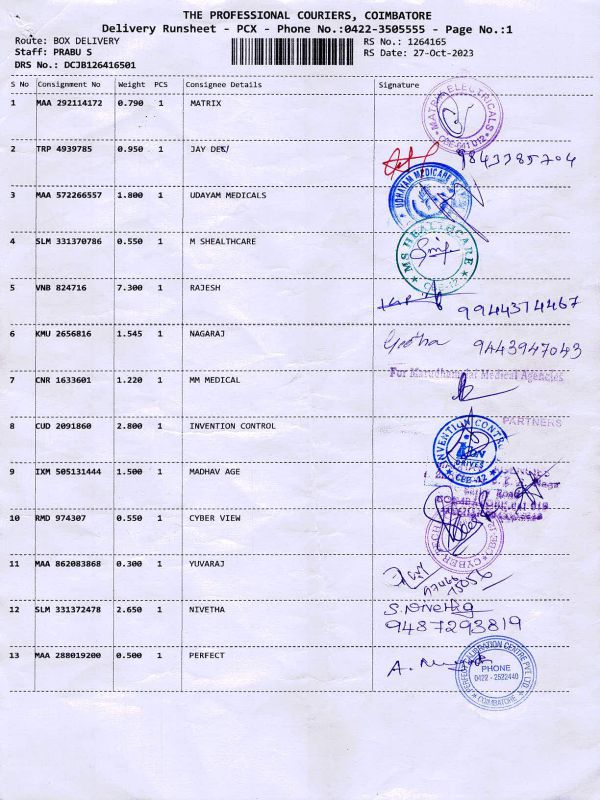 THE PROFESSIONAL COURIERS, COIMBATORE
Delivery Runsheet - PCX - Phone No.:0422-3505555 - Page No.:1
Route: BOX DELIVERY RS No.: 1264165
Staff: PRABU S RS Date: 27-Oct-2023
DRS No.: DCJB126416501
S No Consignment No Weight PCS Consignee Details Signature
1 MAA 292114172 0.790 1 MATRIX
MATRIX ELECTRICALS
CBE-641 012
2 TRP 4939785 0.950 1 JAY DEE
9843385704
3 MAA 572266557 1.800 1 UDAYAM MEDICALS
UDHAYAM MEDICARE
4 SLM 331370786 0.550 1 M SHEALTHCARE
MS HEALTHCARE
CBE-12
5 VNB 824716 7.300 1 RAJESH
9944374467
6 KMU 2656816 1.545 1 NAGARAJ
9443947043
7 CNR 1633601 1.220 1 MM MEDICAL
Medical Agencies
PARTNERS
8 CUD 2091860 2.800 1 INVENTION CONTROL
INVENTION CONTR
DRIVES
CBE-12
9 IXM 505131444 1.500 1 MADHAV AGE
10 RMD 974307 0.550 1 CYBER VIEW
CYBER
11 MAA 862083868 0.300 1 YUVARAJ
12 SLM 331372478 2.650 1 NIVETHA
S. Nivetha
9487293819
13 MAA 288019200 0.500 1 PERFECT
PERFECT CALIBRATION CENTRE PVT LTD
PHONE
0422 - 2522440
COIMBATORE